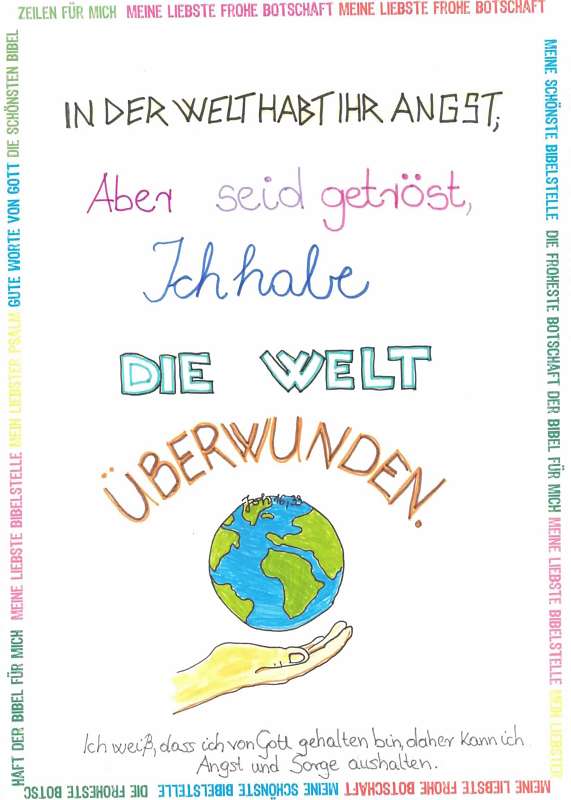 ZEILEN FÜR MICH MEINE LIEBSTE FROHE BOTSCHAFT MEINE LIEBSTE FROHE BOTSCHAFT
MEINE SCHÖNSTE BIBELSTELLE DIE FROHESTE BOTSCHAFT DER BIBEL FÜR MICH MEINE LIEBSTE BIBELSTELLE MEIN LIEBSTER
IN DER WELT HABT IHR ANGST;
Aber seid getröst,
Ich habe
DIE WELT
ÜBERWUNDEN.
Joh 16,33
Ich weiß, dass ich von Gott gehalten bin, daher kann ich
Angst und Sorge aushalten.
MEINE LIEBSTE FROHE BOTSCHAFT MEINE SCHÖNSTE BIBELSTELLE DIE FROHESTE BOTSC
HAFT DER BIBEL FÜR MICH MEINE LIEBSTE BIBELSTELLE MEIN LIEBSTER PSALM GUTE WORTE VON GOTT DIE SCHÖNSTEN BIBEL